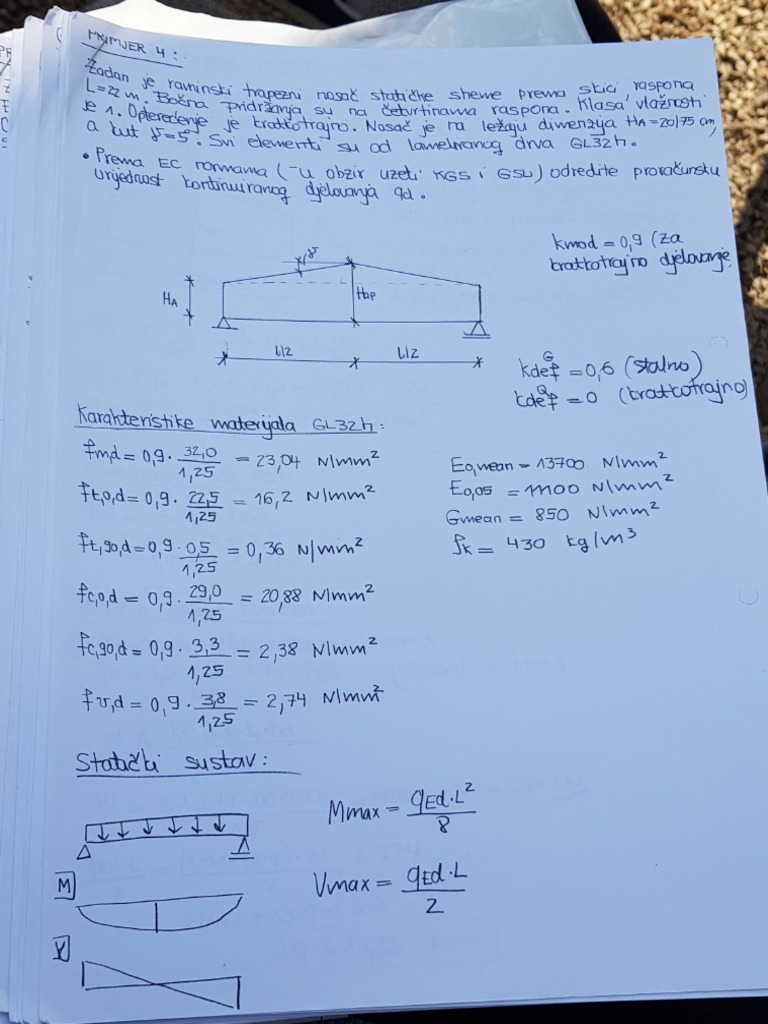 PRIMJER 4:
Zadan je ravninski trapezni nosač statičke sheme prema skici, raspona
L=22 m. Bočna pridržanja su na četvrtinama raspona. Klasa vlažnosti
je 1. Opterećenje je kratkotrajno. Nosač je na ležaju dimenzija HA=20/75 cm,
a kut γ=5°. Svi elementi su od lameliranog drva GL32h.
• Prema EC normama (-u obzir uzeti KGS i GSU) odredite proračunsku
vrijednost kontinuiranog djelovanja qd.
kmod = 0,9 (za
kratkotrajno djelovanje)
γ
HA
Hap
L/2
L/2
kdef G = 0,6 (stalno)
kdef Q = 0 (kratkotrajno)
Karakteristike materijala GL32h:
fm,d = 0,9 · 32,0/1,25 = 23,04 N/mm²
ft,0,d = 0,9 · 22,5/1,25 = 16,2 N/mm²
ft,90,d = 0,9 · 0,5/1,25 = 0,36 N/mm²
fc,0,d = 0,9 · 29,0/1,25 = 20,88 N/mm²
fc,90,d = 0,9 · 3,3/1,25 = 2,38 N/mm²
fv,d = 0,9 · 3,8/1,25 = 2,74 N/mm²
E0,mean = 13700 N/mm²
E0,05 = 11100 N/mm²
Gmean = 850 N/mm²
ρk = 430 kg/m³
Statički sustav:
Mmax = qEd·L²/8
M
Vmax = qEd·L/2
V